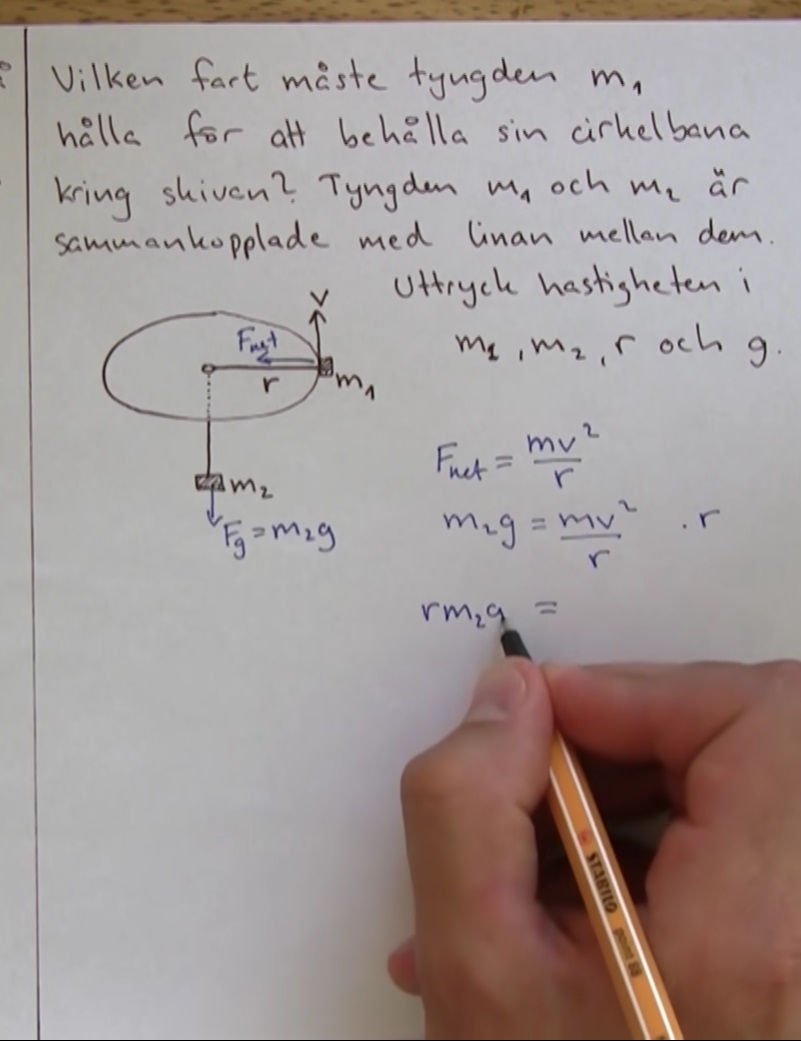 Vilken fart måste tyngden m₁
hålla för att behålla sin cirkelbana
kring skivan? Tyngden m₁ och m₂ är
sammankopplade med linan mellan dem.
Uttryck hastigheten i
m₁, m₂, r och g.
v
Fnet
r
m₁
m₂
Fg = m₂g
Fnet = mv²/r
m₂g = mv²/r · r
rm₂g =
STABILO point 88